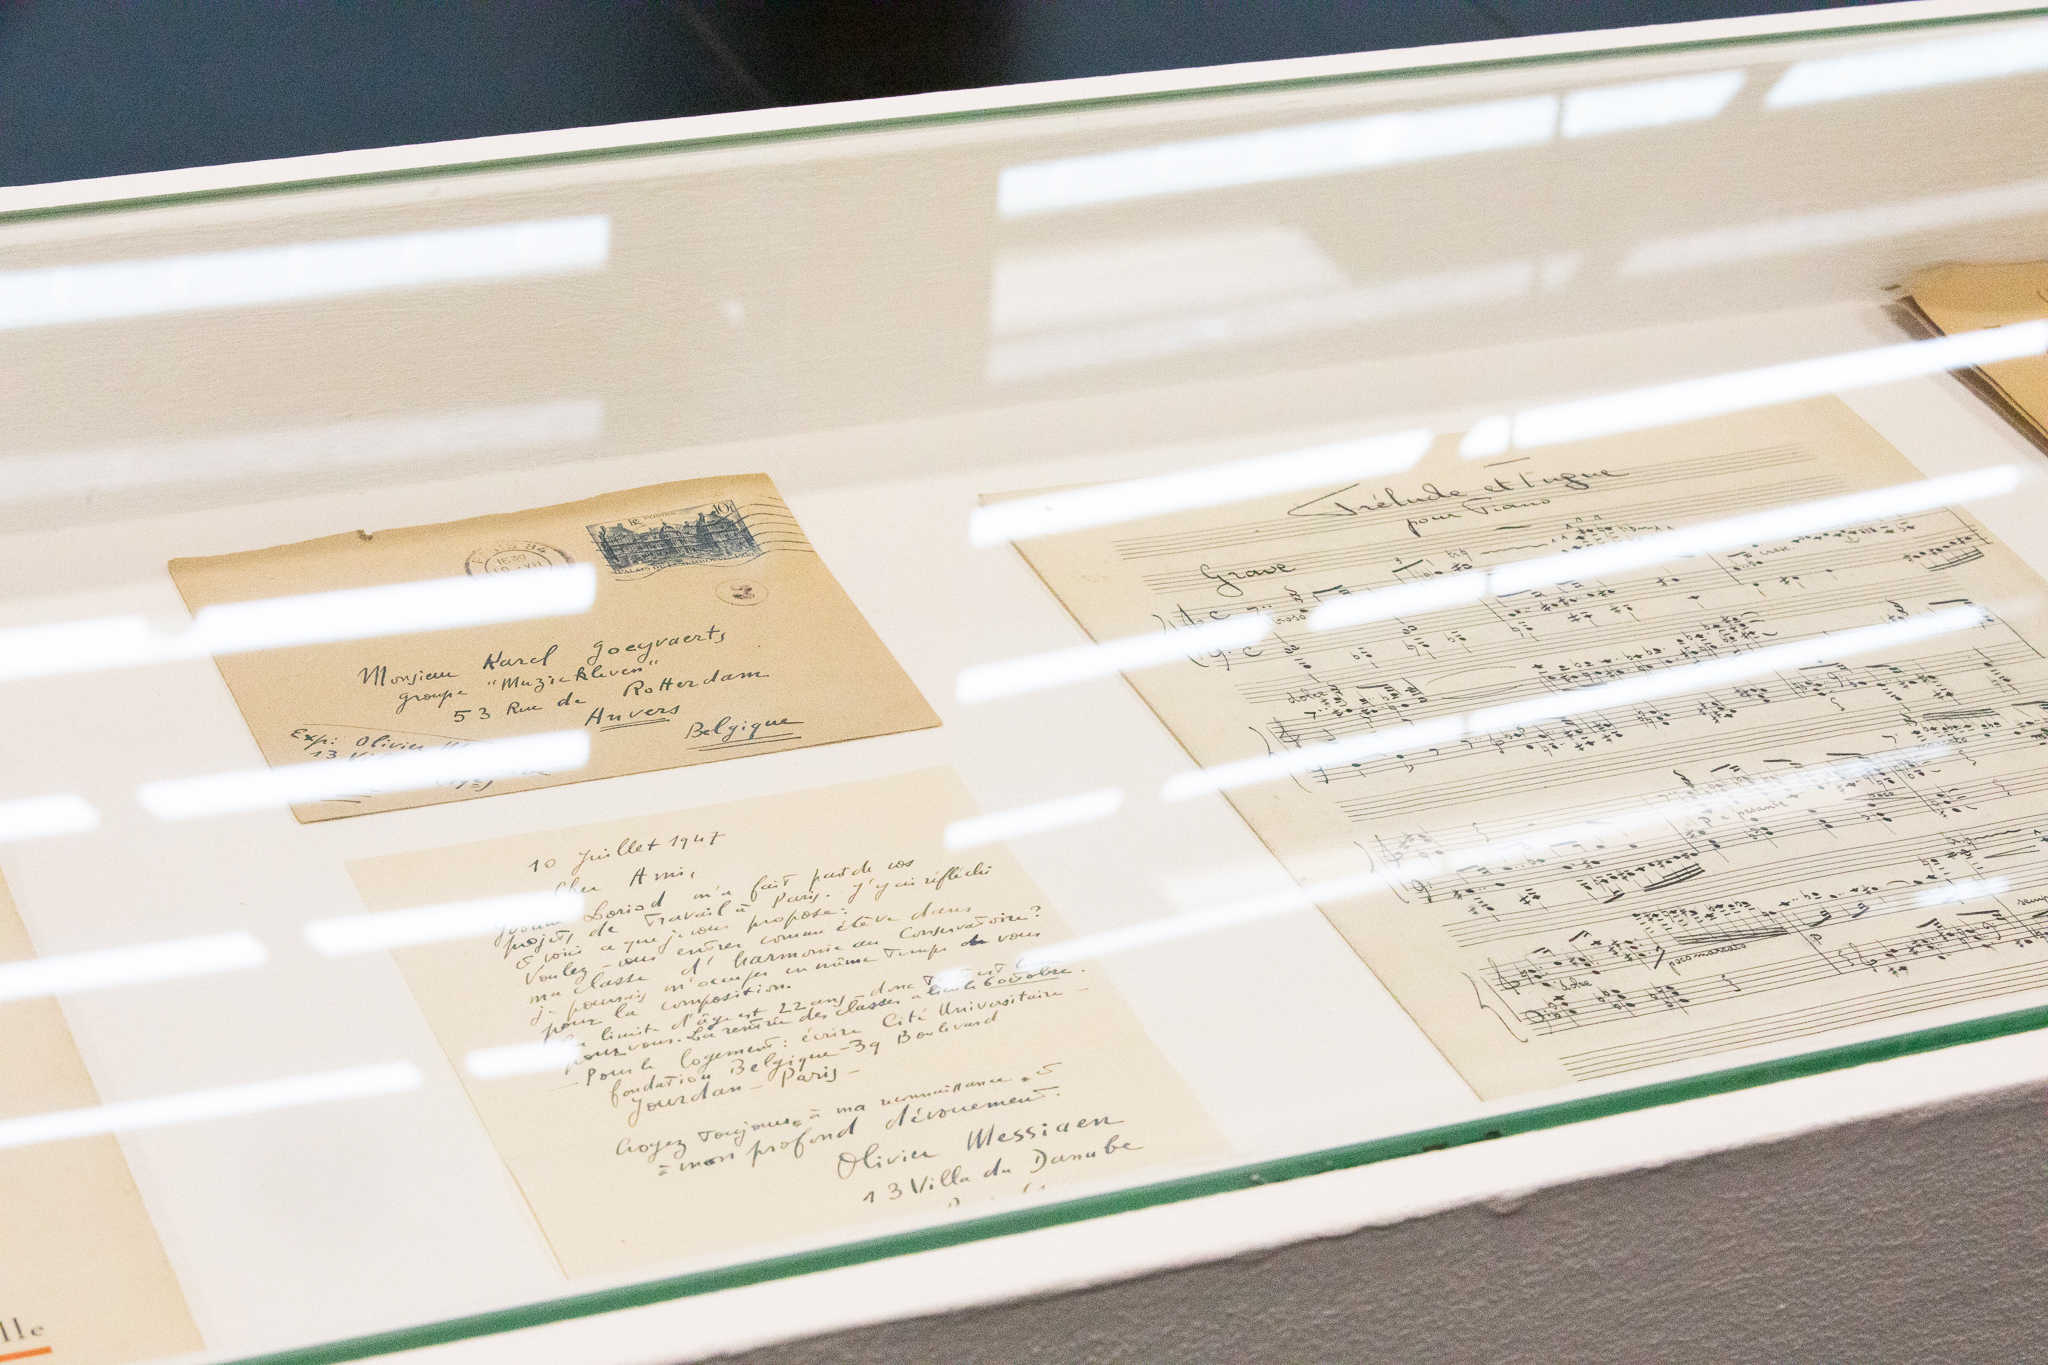 10f
PALAIS DU LUXEMBOURG
Monsieur Karel Goeyvaerts
groupe "Muziekleven"
53 Rue de Rotterdam
Anvers
Belgique
Exp: Olivier
13
10 Juillet 1947
Cher Ami,
Yvonne Loriod m'a fait part de vos
projets de travail à Paris. J'y ai réfléchi
& voici ce que je vous propose:
Voulez-vous entrer comme élève dans
ma classe d'harmonie au Conservatoire?
je pourrais m'occuper en même temps de vous
pour la composition.
La limite d'âge est 22 ans - donc tout est bien
pour vous. La rentrée des classes a lieu le 6 octobre.
- Pour le logement: écrire Cité Universitaire -
fondation Belgique - 39 Boulevard
Jourdan - Paris -
Croyez toujours à ma reconnaissance &
à mon profond dévouement.
Olivier Messiaen
13 Villa du Danube
Prélude et Fugue
pour Piano
Grave
cresc.
dolce
marcato
p e pesante
poco
poco marcato
dolce
p
lle